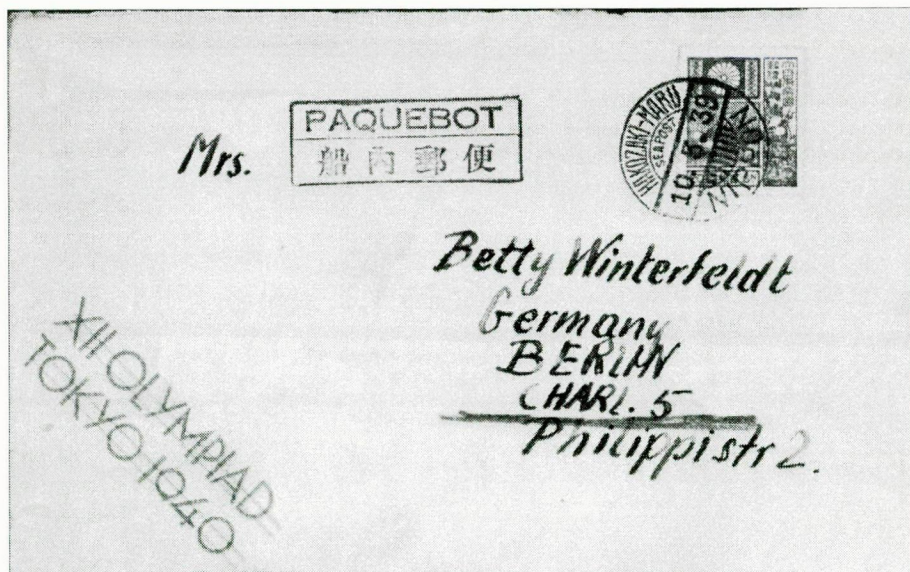 PAQUEBOT
船内郵便
HAKOZAKI-MARU
SEAPOST
10.5.39
NIPPON
Mrs.
Betty Winterfeldt
Germany
BERLIN
CHARL. 5
Philippistr 2.
XII OLYMPIAD
TOKYO-1940